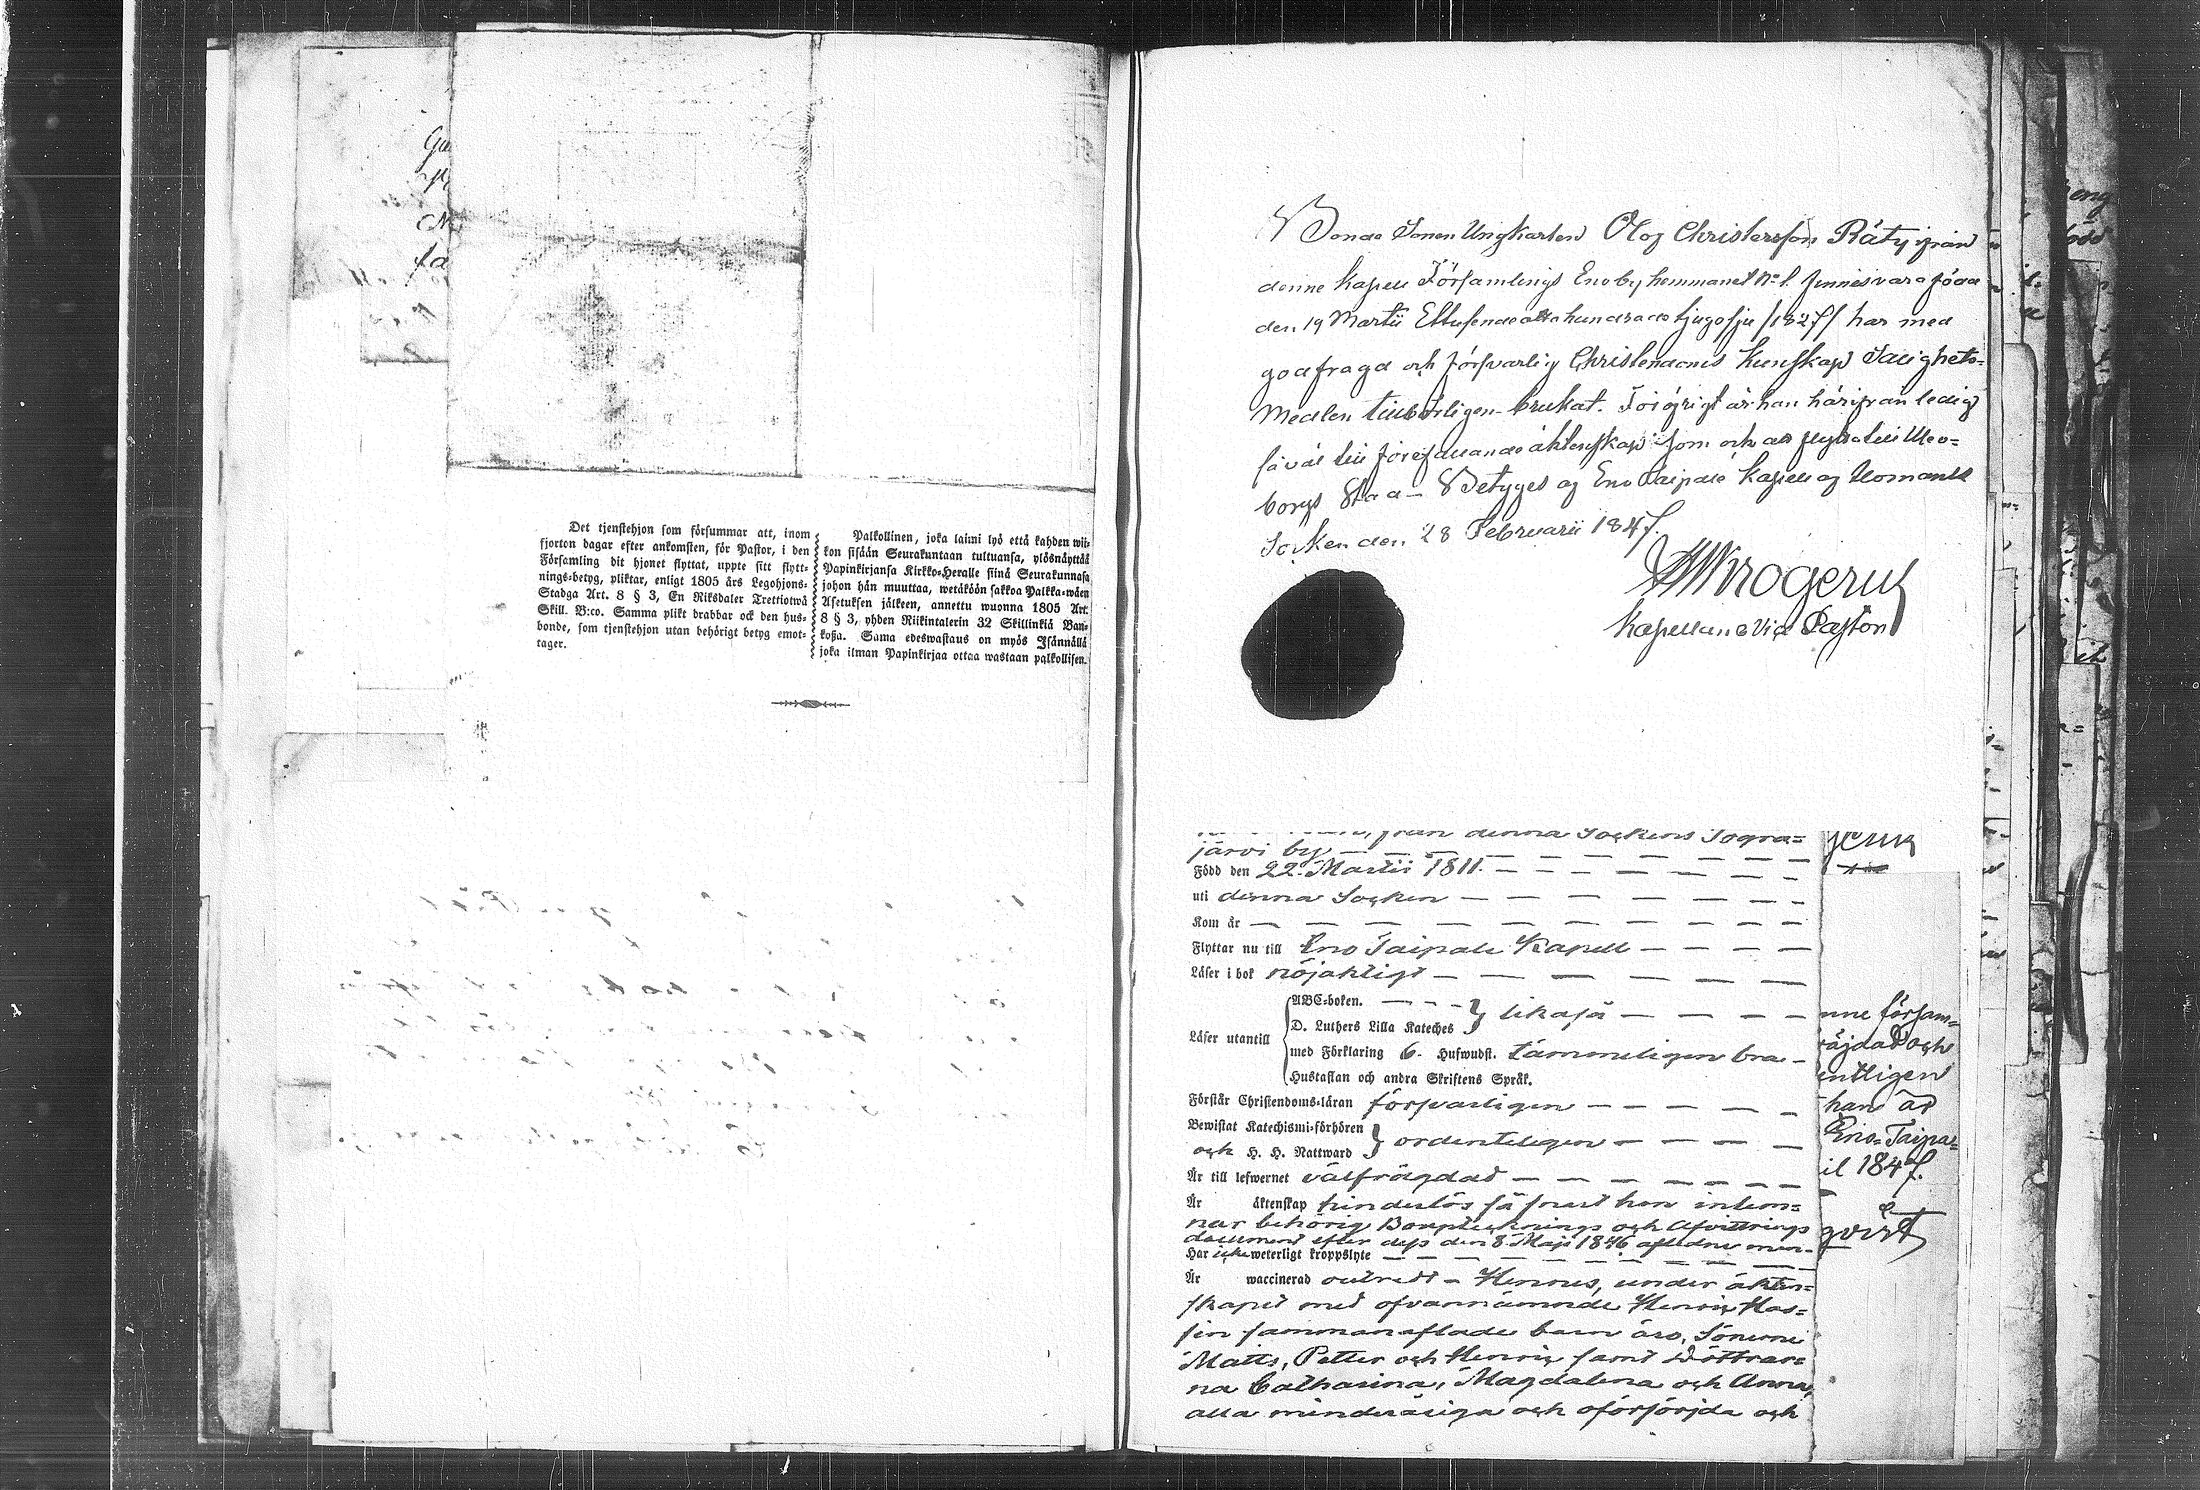 Gu
Det tjenstehjon som försummar att, inom
fjorton dagar efter ankomsten, för Pastor, i den
Församling dit hjonet flyttat, uppte sitt flytt-
nings-betyg, pliktar, enligt 1805 års Legohjons-
Stadga Art. 8 § 3, En Riksdaler Trettiotwå
Skill. B:co. Samma plikt drabbar ock den hus-
bonde, som tjenstehjon utan behörigt betyg emot-
tager.
Palkollinen, joka laimi lyö että kahden wii-
kon sisään Seurakuntaan tultuansa, ylösnäyttää
Papinkirjansa Kirkko-Heralle siinä Seurakunnasa
johon hän muuttaa, wetäköön sakkoa Palkka-wäen
Asetuksen jälkeen, annettu wuonna 1805 Art.
8 § 3, yhden Riikintalerin 32 Skillinkiä Ban-
koßa. Sama edeswastaus on myös Isännällä
joka ilman Papinkirjaa ottaa wastaan palkollisen.
Bonde Sonen Ungkarlen Olof Christersson Räty ifrån
denne Kapell Församlings Eno by hemmanet No 1. född
den 19 Martii Ettusende otta hundrade tjugosju /1827/ har med
godfragd och försvarlig Christendoms Kunskap Salighets-
Medlen tillbörligen brukat. Föröfrigt är han härifrån ledig
såväl till förefallande äktenskap som och att flytta till Uleo-
borgs Stad – Betyges af Eno Taipale Kapell af Ilomants
Socken den 28 Februarii 1847.
Krogerus
Kapellan o Vice Pastor
från denna Sockens Sogra=
järvi by — — — — — — —
Född den 22. Martii 1811. — — — — —
uti denna Socken — — — — — —
Kom år — — — — — — — —
Flyttar nu till Eno Taipale Kapell — — — —
Läser i bok nöjaktigt — — — — — —
Läser utantill
ABC-boken. — — —
D. Luthers Lilla Kateches } likaså — — — —
med Förklaring 6. Hufwudst. tämmeligen bra —
Hustaflan och andra Skriftens Språk.
Förstår Christendoms-läran försvarligen — — — — —
Bewistat Katechismi-förhören
och H. H. Nattward } ordenteligen — — — —
Är till lefwernet välfrägdad — — — — — —
Är äktenskap hinderlös så snart hon inlem=
nar behörig Bouptecknings och Afvittrings
document efter dess den 8 Maji 1846 aflidne man —
Har icke weterligt kroppslyte — — — — —
Är waccinerad — Hennes, under äkten=
skapet med ofvannämnde Henric Has=
sin sammanaflade barn äro, Sönerne
Matts, Petter och Henric samt Döttrar=
na Catharina, Magdalena och Anna,
alla minderåriga och oförsörjda och
nne försam=
räjdad och
entligen
han är
Eno-Taipa=
il 1847.
qvist